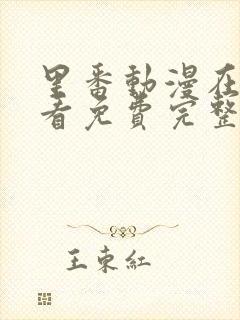 里番動漫在
看免費完整
王東紅